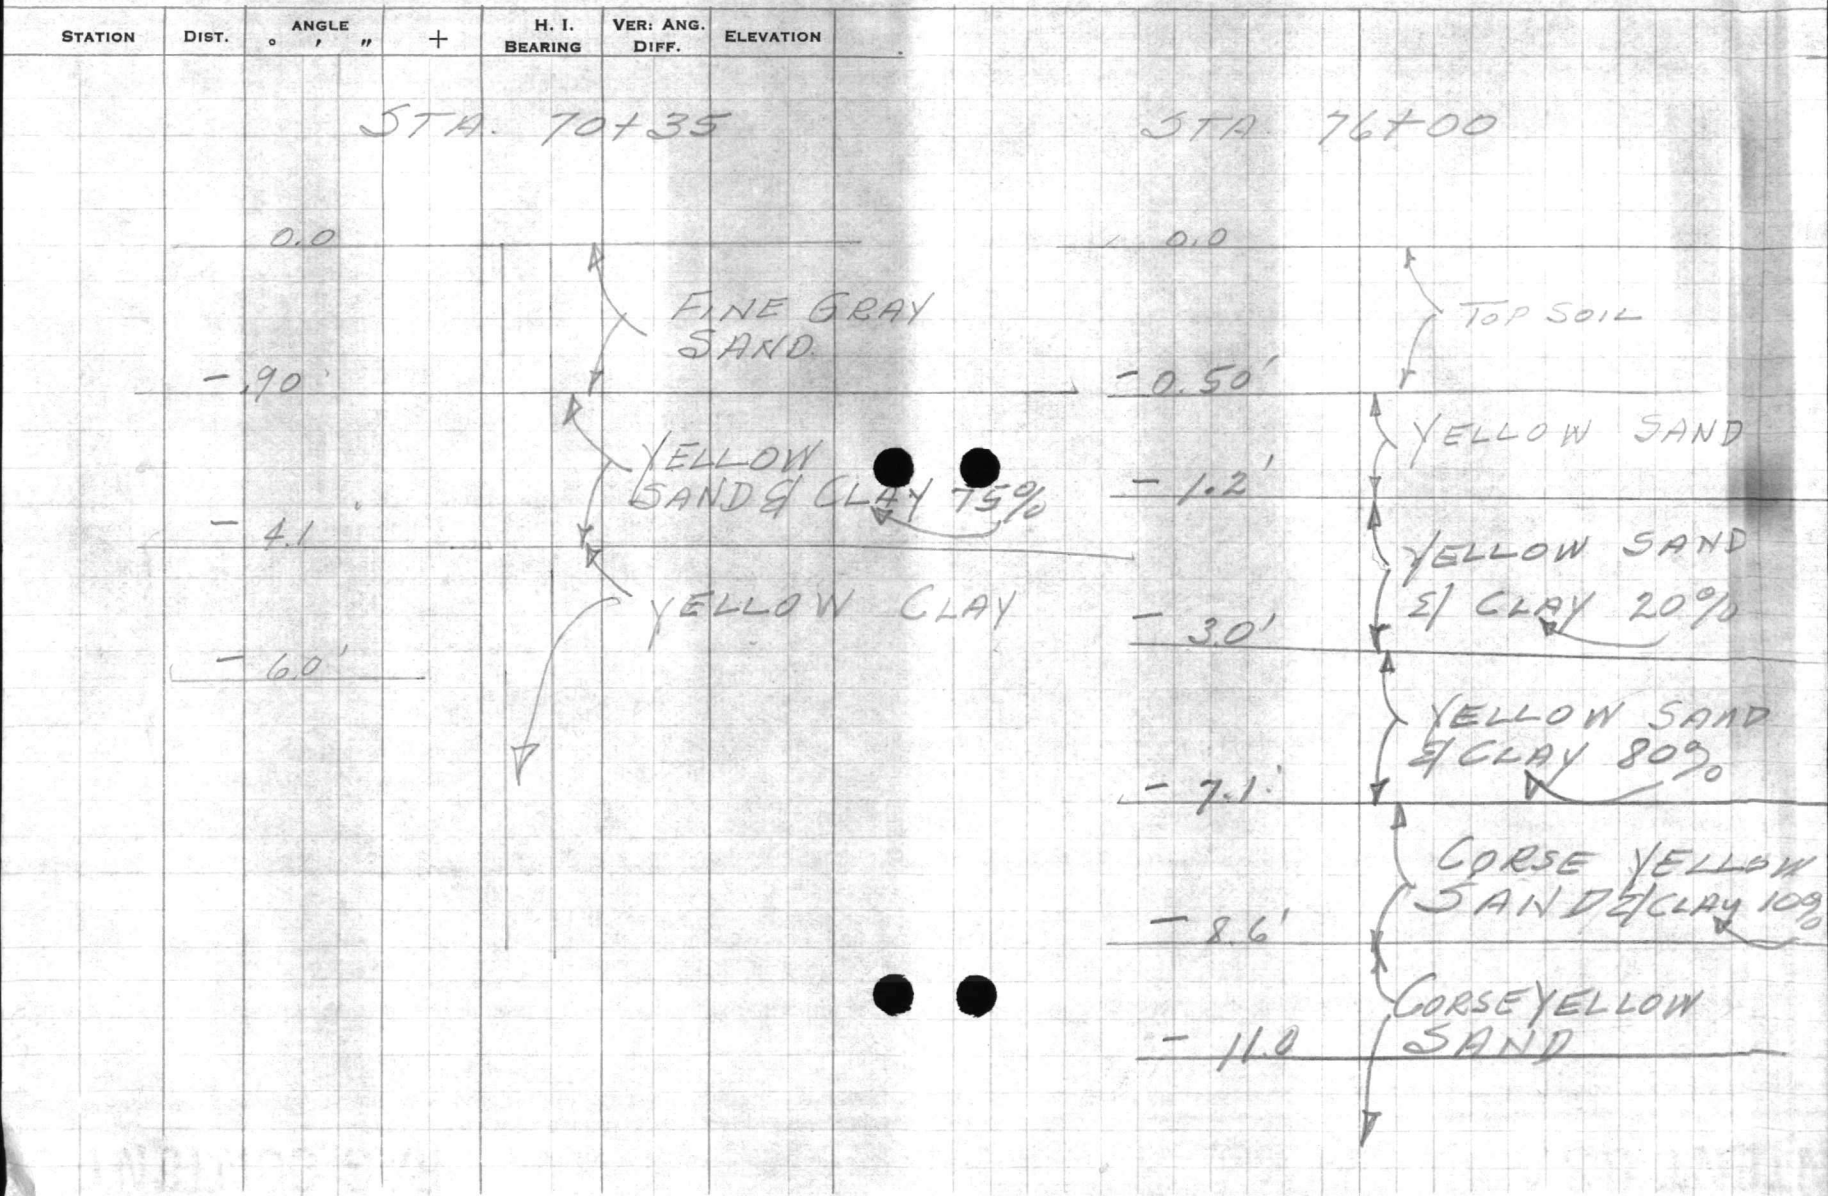 STATION DIST. ANGLE ° ' " + H. I. BEARING VER: ANG. DIFF. ELEVATION
STA. 70+35
0.0
FINE GRAY
SAND
- .90'
YELLOW
SAND & CLAY 75%
- 4.1'
YELLOW CLAY
- 6.0'
STA 76+00
0.0
TOP SOIL
- 0.50'
YELLOW SAND
- 1.2'
YELLOW SAND
& CLAY 20%
- 3.0'
YELLOW SAND
& CLAY 80%
- 7.1'
CORSE YELLOW
SAND & CLAY 10%
- 8.6'
CORSE YELLOW
SAND
- 11.0